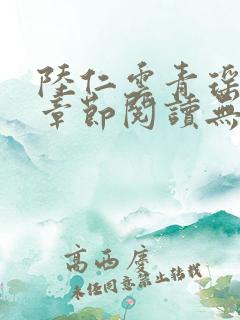 陸仁雲青瑤
章節閱讀無
高西廣
未经同意禁止转载